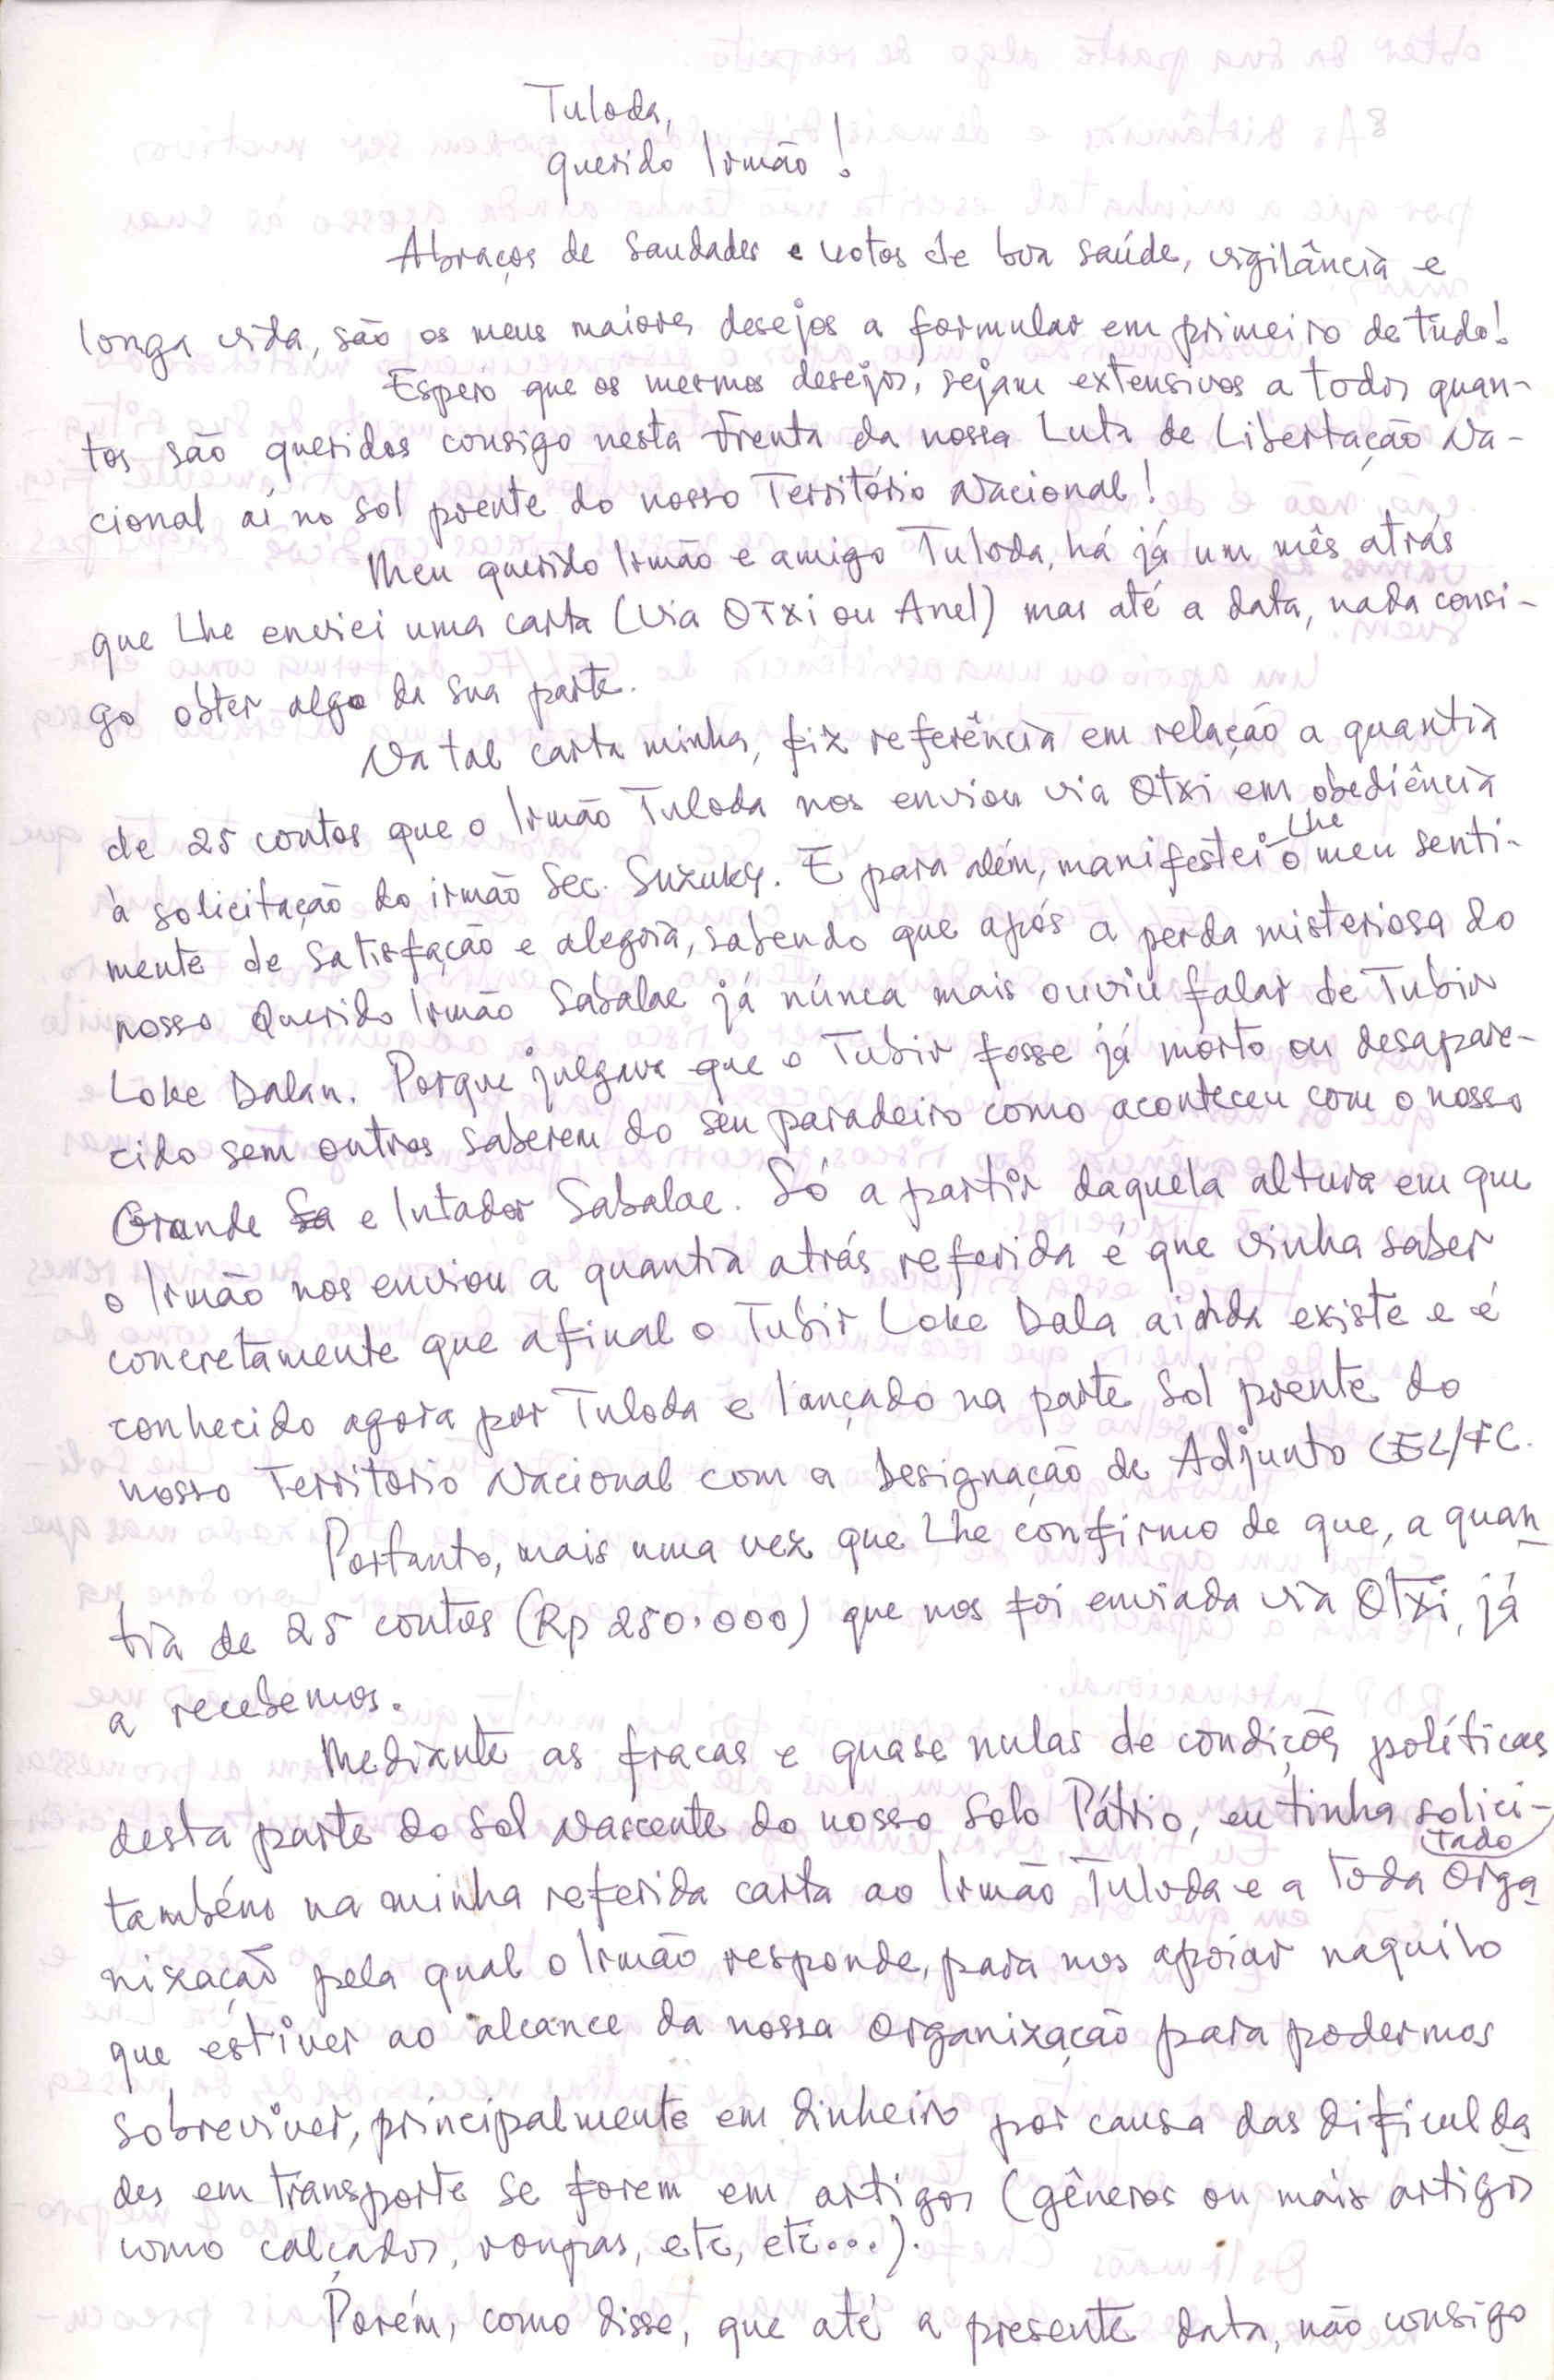 Tuloda,
querido Irmão!
Abraços de saudades e votos de boa saúde, vigilância e
longa vida, são os meus maiores desejos a formular em primeiro de tudo!
Espero que os mesmos desejos, sejam extensivos a todos quan-
tos são queridos consigo nesta Frenta da nossa Luta de Libertação Na-
cional aí no Sol poente do nosso Território Nacional!
Meu querido Irmão e amigo Tuloda, há já um mês atrás
que Lhe enviei uma carta (via OTXi ou Anel) mas até a data, nada consi-
go obter algo da sua parte.
Na tal carta minha, fiz referência em relação a quantia
de 25 contos que o Irmão Tuloda nos enviou via Otxi em obediência
à solicitação do irmão Sec. Suzuky. E para além, manifestei-Lhe o meu senti-
mente de satisfação e alegria, sabendo que após a perda misteriosa do
nosso Querido Irmão Sabalae já núnca mais ouviu falar de Tubir
Loke Dalan. Porque julgava que o Tubir fosse já morto ou desapare-
cido sem outros saberem do seu paradeiro como aconteceu com o nosso
Grande Sa e lutador Sabalae. Só a partir daquela altura em que
o Irmão nos enviou a quantia atrás referida é que vinha saber
concretamente que afinal o Tubir Loke Dala ainda existe e é
conhecido agora por Tuloda e lançado na parte Sol poente do
nosso Território Nacional com a Designação de Adjunto CEL/FC.
Portanto, mais uma vez que Lhe confirmo de que, a quan
tia de 25 contos (Rp 250.000) que nos foi enviada via OTXi, já
a recebemos.
Mediante as fracas e quase nulas de condições políticas
desta parte do Sol Nascente do nosso Solo Pátrio, eu tinha solici-
tado
também na minha referida carta ao Irmão Tuloda e a toda Orga
nização pela qual o Irmão responde, para nos apoiar naquilo
que estiver ao alcance da nossa Organização para podermos
sobreviver, principalmente em dinheiro por causa das dificulda
des em transporte se forem em artigos (gêneros ou mais artigos
como calçados, roupas, etc, etc...).
Porém, como disse, que até a presente data, não consigo